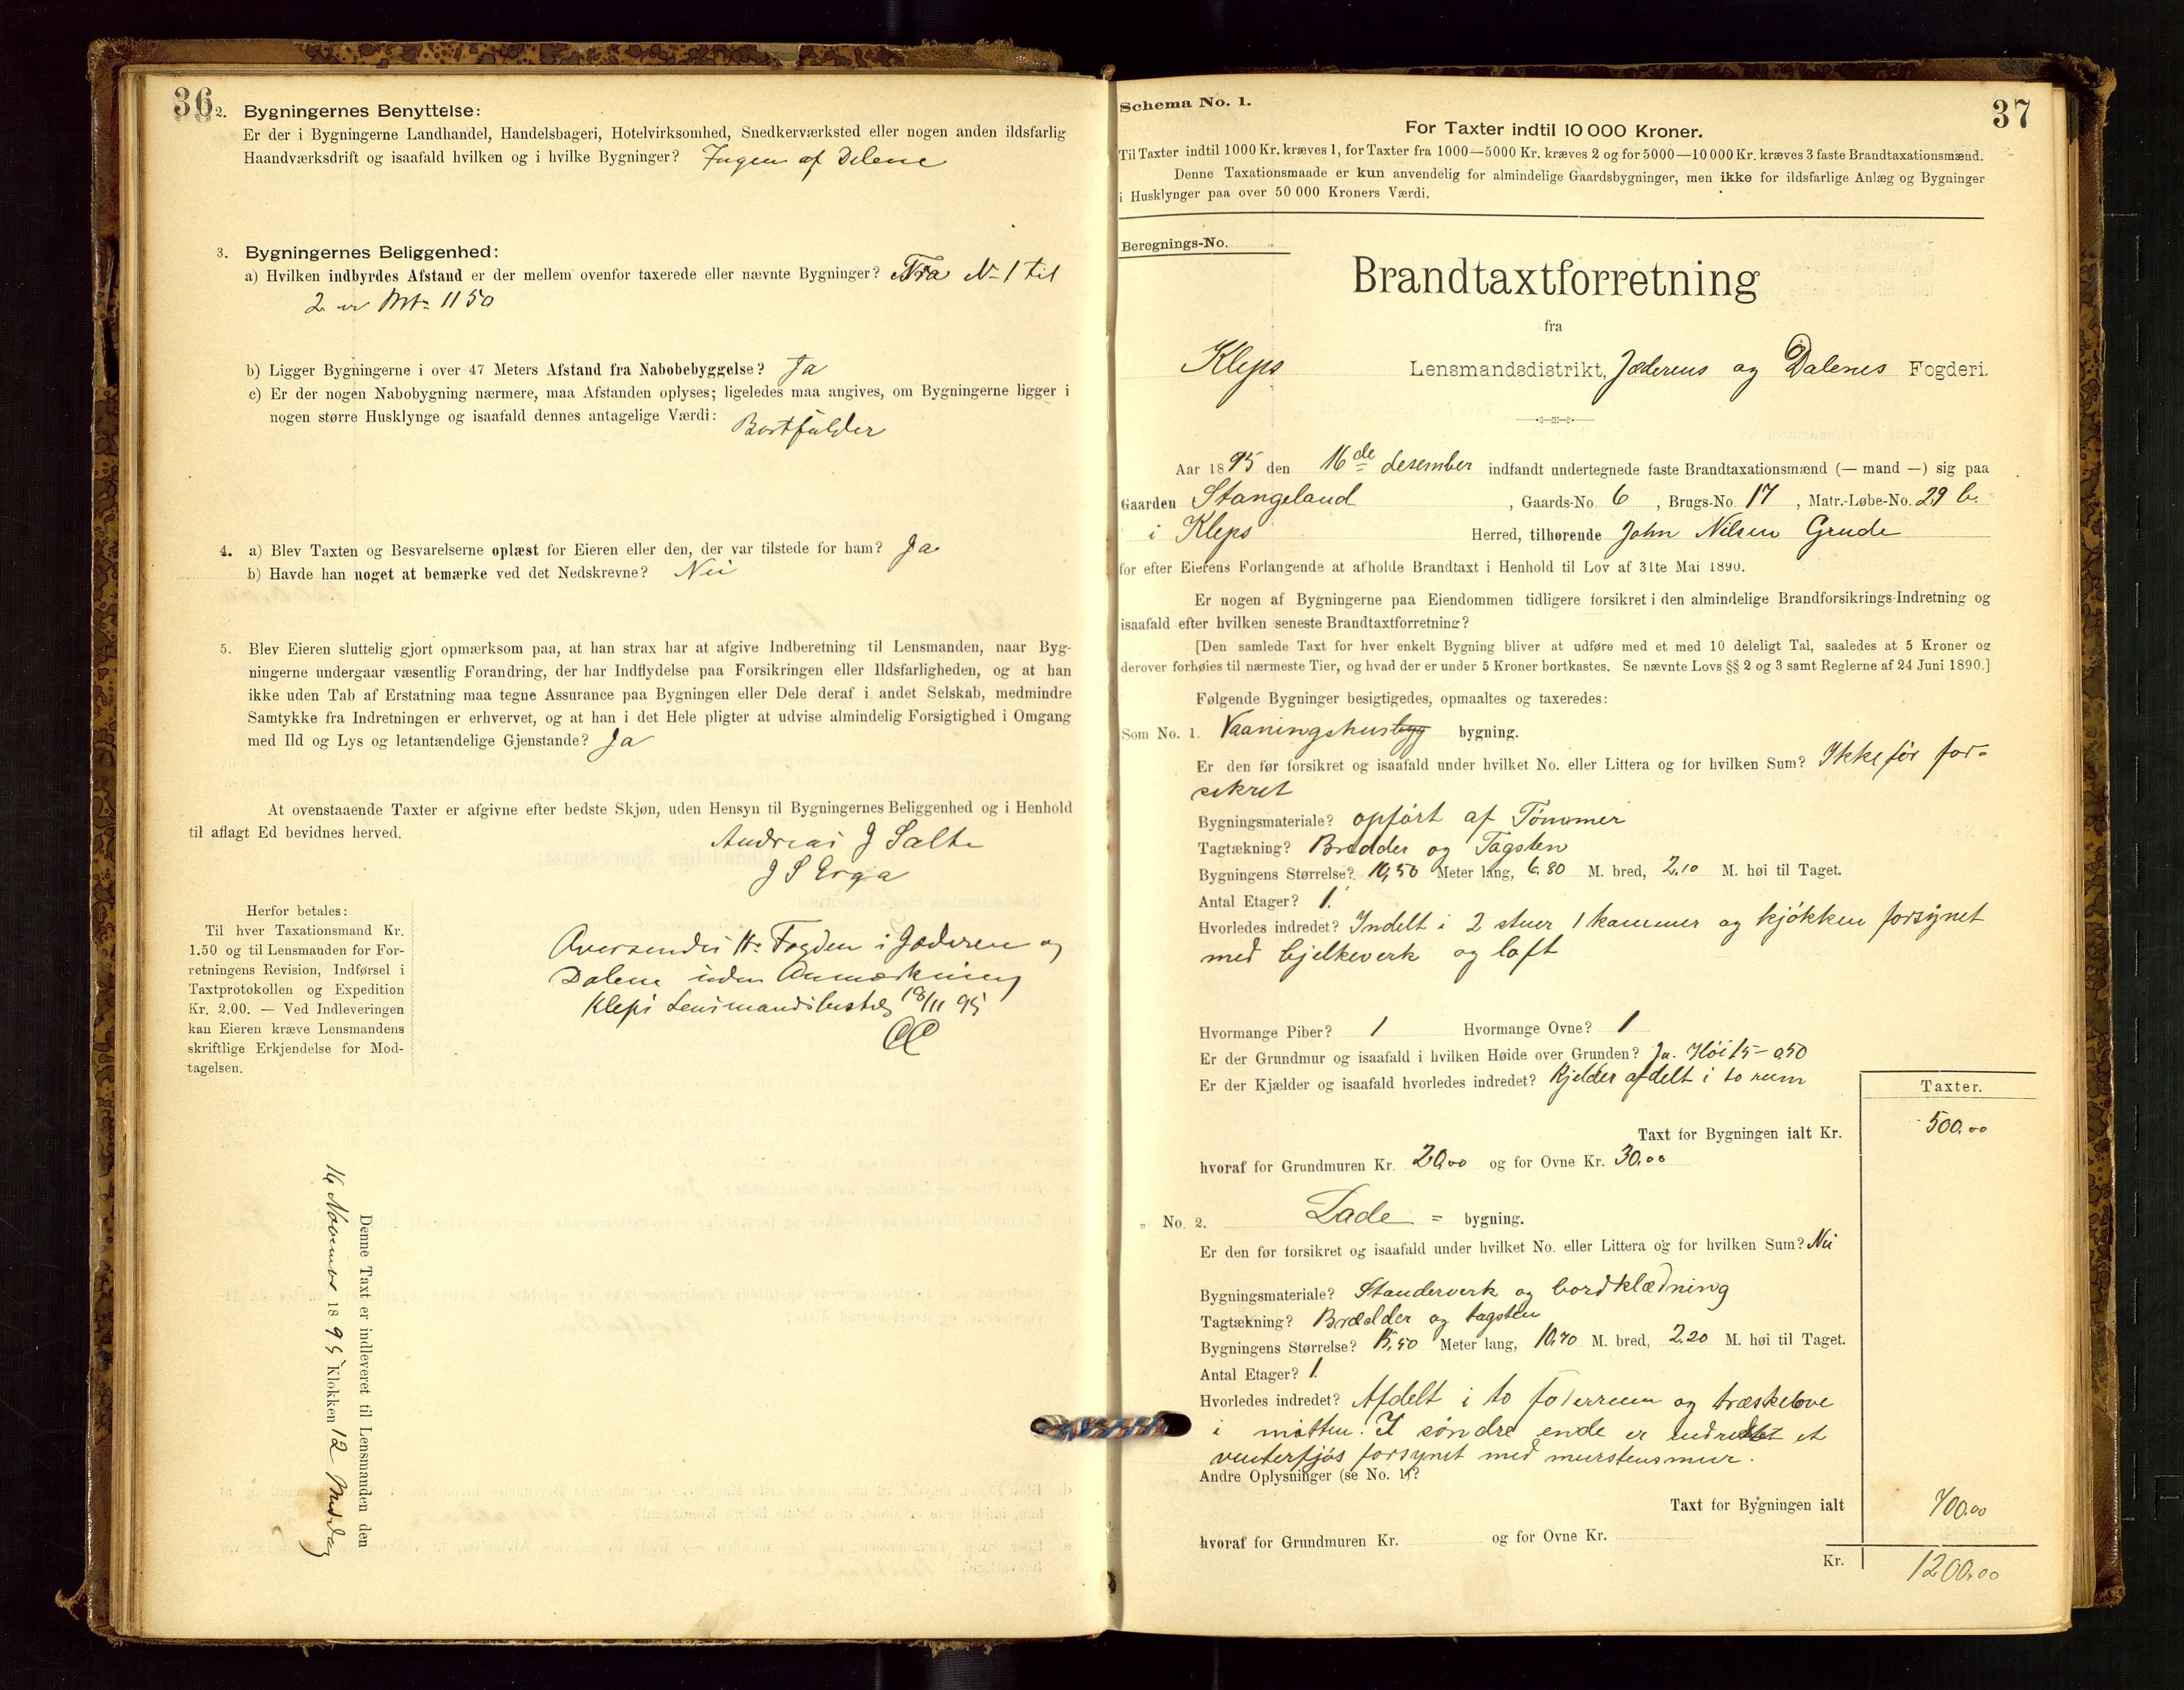 36
2. Bygningernes Benyttelse:
Er der i Bygningerne Landhandel, Handelsbageri, Hotelvirksomhed, Snedkerværksted eller nogen anden ildsfarlig
Haandværksdrift og isaafald hvilken og i hvilke Bygninger? Ingen af Delene
3. Bygningernes Beliggenhed:
a) Hvilken indbyrdes Afstand er der mellem ovenfor taxerede eller nævnte Bygninger? Fra No 1 til
2 er Mt. 11 50
b) Ligger Bygningerne i over 47 Meters Afstand fra Nabobebyggelse? Ja
c) Er der nogen Nabobygning nærmere, maa Afstanden oplyses; ligeledes maa angives, om Bygningerne ligger i
nogen større Husklynge og isaafald dennes antagelige Værdi: Bortfalder
4. a) Blev Taxten og Besvarelserne oplæst for Eieren eller den, der var tilstede for ham? Ja
b) Havde han noget at bemærke ved det Nedskrevne? Nei
5. Blev Eieren sluttelig gjort opmærksom paa, at han strax har at afgive Indberetning til Lensmanden, naar Byg-
ningerne undergaar væsentlig Forandring, der har Indflydelse paa Forsikringen eller Ildsfarligheden, og at han
ikke uden Tab af Erstatning maa tegne Assurance paa Bygningen eller Dele deraf i andet Selskab, medmindre
Samtykke fra Indretningen er erhvervet, og at han i det Hele pligter at udvise almindelig Forsigtighed i Omgang
med Ild og Lys og letantændelige Gjenstande? Ja
At ovenstaaende Taxter er afgivne efter bedste Skjøn, uden Hensyn til Bygningernes Beliggenhed og i Henhold
til aflagt Ed bevidnes herved.
Andreas J Salte
J S Erga
Herfor betales:
Til hver Taxationsmand Kr.
1.50 og til Lensmanden for For-
retningens Revision, Indførsel i
Taxtprotokollen og Expedition
Kr. 2.00. — Ved Indleveringen
kan Eieren kræve Lensmandens
skriftlige Erkjendelse for Mod-
tagelsen.
Oversendes Hr. Fogden i Jæderen og
Dalene uden Anmærkning
Kleps Lensmandsbestil 18/11 95
Denne Taxt er indleveret til Lensmanden den
16 November 1895 Klokken 12 Middag
37
Schema No. 1.
For Taxter indtil 10 000 Kroner.
Til Taxter indtil 1000 Kr. kræves 1, for Taxter fra 1000—5000 Kr. kræves 2 og for 5000—10 000 Kr. kræves 3 faste Brandtaxationsmænd.
Denne Taxationsmaade er kun anvendelig for almindelige Gaardsbygninger, men ikke for ildsfarlige Anlæg og Bygninger
i Husklynger paa over 50 000 Kroners Værdi.
Beregnings-No.
Brandtaxtforretning
fra
Kleps Lensmandsdistrikt, Jæderens og Dalenes Fogderi.
Aar 1895 den 16de desember indfandt undertegnede faste Brandtaxationsmænd (— mand —) sig paa
Gaarden Stangeland, Gaards-No. 6, Brugs-No. 17, Matr.-Løbe-No. 29 b.
i Kleps Herred, tilhørende John Nilsen Grude
for efter Eierens Forlangende at afholde Brandtaxt i Henhold til Lov af 31te Mai 1890.
Er nogen af Bygningerne paa Eiendommen tidligere forsikret i den almindelige Brandforsikrings-Indretning og
isaafald efter hvilken seneste Brandtaxtforretning?
[Den samlede Taxt for hver enkelt Bygning bliver at udføre med et med 10 deleligt Tal, saaledes at 5 Kroner og
derover forhøies til nærmeste Tier, og hvad der er under 5 Kroner bortkastes. Se nævnte Lovs §§ 2 og 3 samt Reglerne af 24 Juni 1890.]
Følgende Bygninger besigtigedes, opmaaltes og taxeredes:
Som No. 1. Vaaningshusbyg bygning.
Er den før forsikret og isaafald under hvilket No. eller Littera og for hvilken Sum? Ikke før for-
sikret
Bygningsmateriale? opført af Tømmer
Tagtækning? Brædder og Tagsten
Bygningens Størrelse? 10,50 Meter lang, 6,80 M. bred, 2,10 M. høi til Taget.
Antal Etager? 1.
Hvorledes indredet? Indelt i 2 stuer 1 kammer og kjøkken forsynet
med bjelkeverk og loft
Hvormange Piber? 1 Hvormange Ovne? 1
Er der Grundmur og isaafald i hvilken Høide over Grunden? Ja. Høi 15 - 0,50
Er der Kjælder og isaafald hvorledes indredet? Kjelder afdelt i to rum
Taxter.
Taxt for Bygningen ialt Kr. 500.00
hvoraf for Grundmuren Kr. 20,00 og for Ovne Kr. 30,00
„ No. 2. Lade = bygning.
Er den før forsikret og isaafald under hvilket No. eller Littera og for hvilken Sum? Nei
Bygningsmateriale? Standerverk og bordklædning
Tagtækning? Brædder og tagsten
Bygningens Størrelse? 15,50 Meter lang, 10,70 M. bred, 2.20 M. høi til Taget.
Antal Etager? 1.
Hvorledes indredet? Afdelt i to foderrum og træskelove
i møtten. I søndre ende er indredet et
venterfjøs forsynet med murstensmur.
Andre Oplysninger (se No. 1)?
Taxt for Bygningen ialt 700.00
hvoraf for Grundmuren Kr. og for Ovne Kr.
Kr. 1200.00